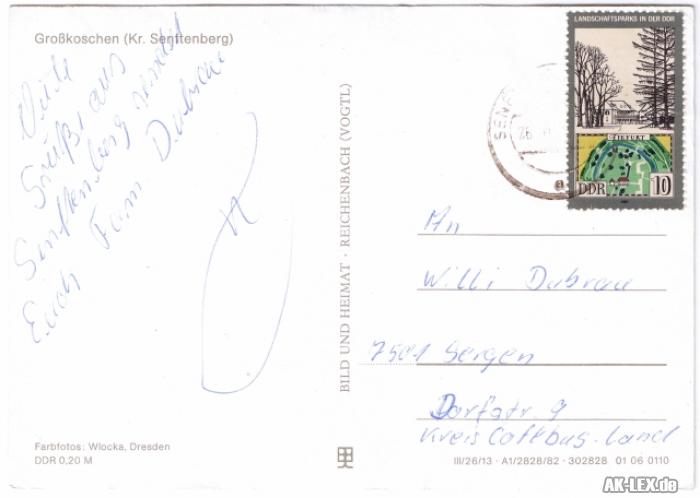 Großkoschen (Kr. Senftenberg)
Viele
Grüße aus
Senftenberg sendet
Euch Fam Dubrau
Farbfotos: Wlocka, Dresden
DDR 0,20 M
BILD UND HEIMAT · REICHENBACH (VOGTL)
SENF
LANDSCHAFTSPARKS IN DER DDR
TIEFURT
DDR 10
An
Willi Dubrau
7501 Sergen
Dorfstr. 9
Kreis Cottbus-Land
III/26/13 · A1/2828/82 · 302828 01 06 0110
AK-LEX.de